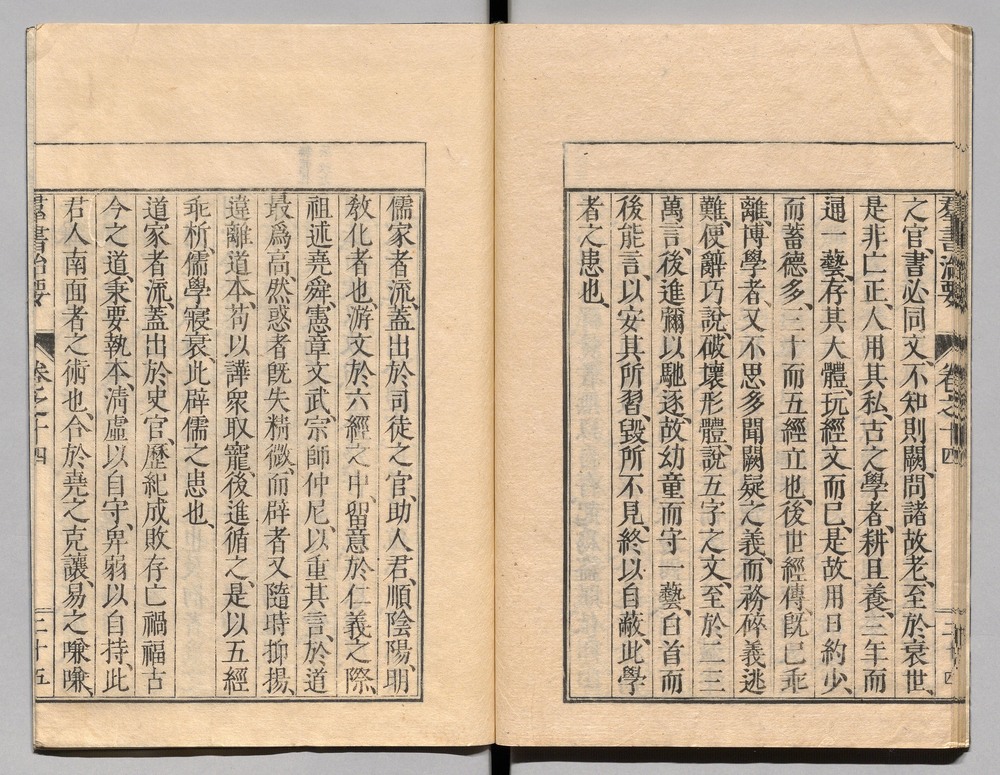 羣書治要 卷之十四
之官、書必同文、不知則闕、問諸故老、至於衰世、
是非亡正、人用其私、古之學者、耕且養、三年而
通一藝、存其大體、玩經文而已、是故用日約少、
而蓄德多、三十而五經立也、後世經傳、既已乖
離、博學者、又不思多聞闕疑之義、而務碎義逃
難、便辭巧說、破壞形體、說五字之文、至於二三
萬言、後進彌以馳逐、故幼童而守一藝、白首而
後能言、以安其所習、毀所不見、終以自蔽、此學
者之患也、
儒家者流、蓋出於司徒之官、助人君、順陰陽、明
敎化者也、游文於六經之中、留意於仁義之際、
祖述堯舜、憲章文武、宗師仲尼、以重其言、於道
最爲高、然惑者既失精微、而辟者又隨時抑揚、
違離道本、苟以譁衆取寵、後進循之、是以五經
乖析、儒學寢衰、此辟儒之患也、
道家者流、蓋出於史官、歷紀成敗存亡禍福古
今之道、秉要執本、淸虛以自守、卑弱以自持、此
君人南面者之術也、合於堯之克讓、易之嗛嗛、
羣書治要 卷之十四 三十五